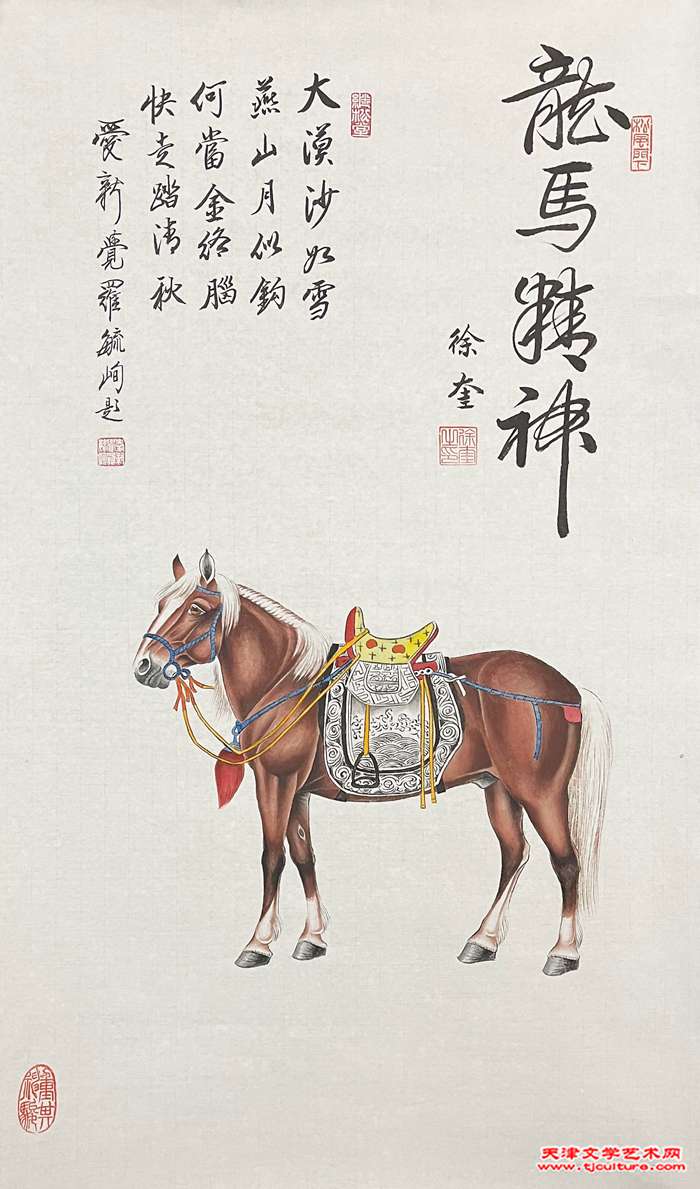 龍馬精神
徐奎
徐奎之印
大漠沙如雪
燕山月似鈎
何當金絡腦
快走踏清秋
愛新覺羅毓峋題
天津文学艺术网
www.tjculture.com